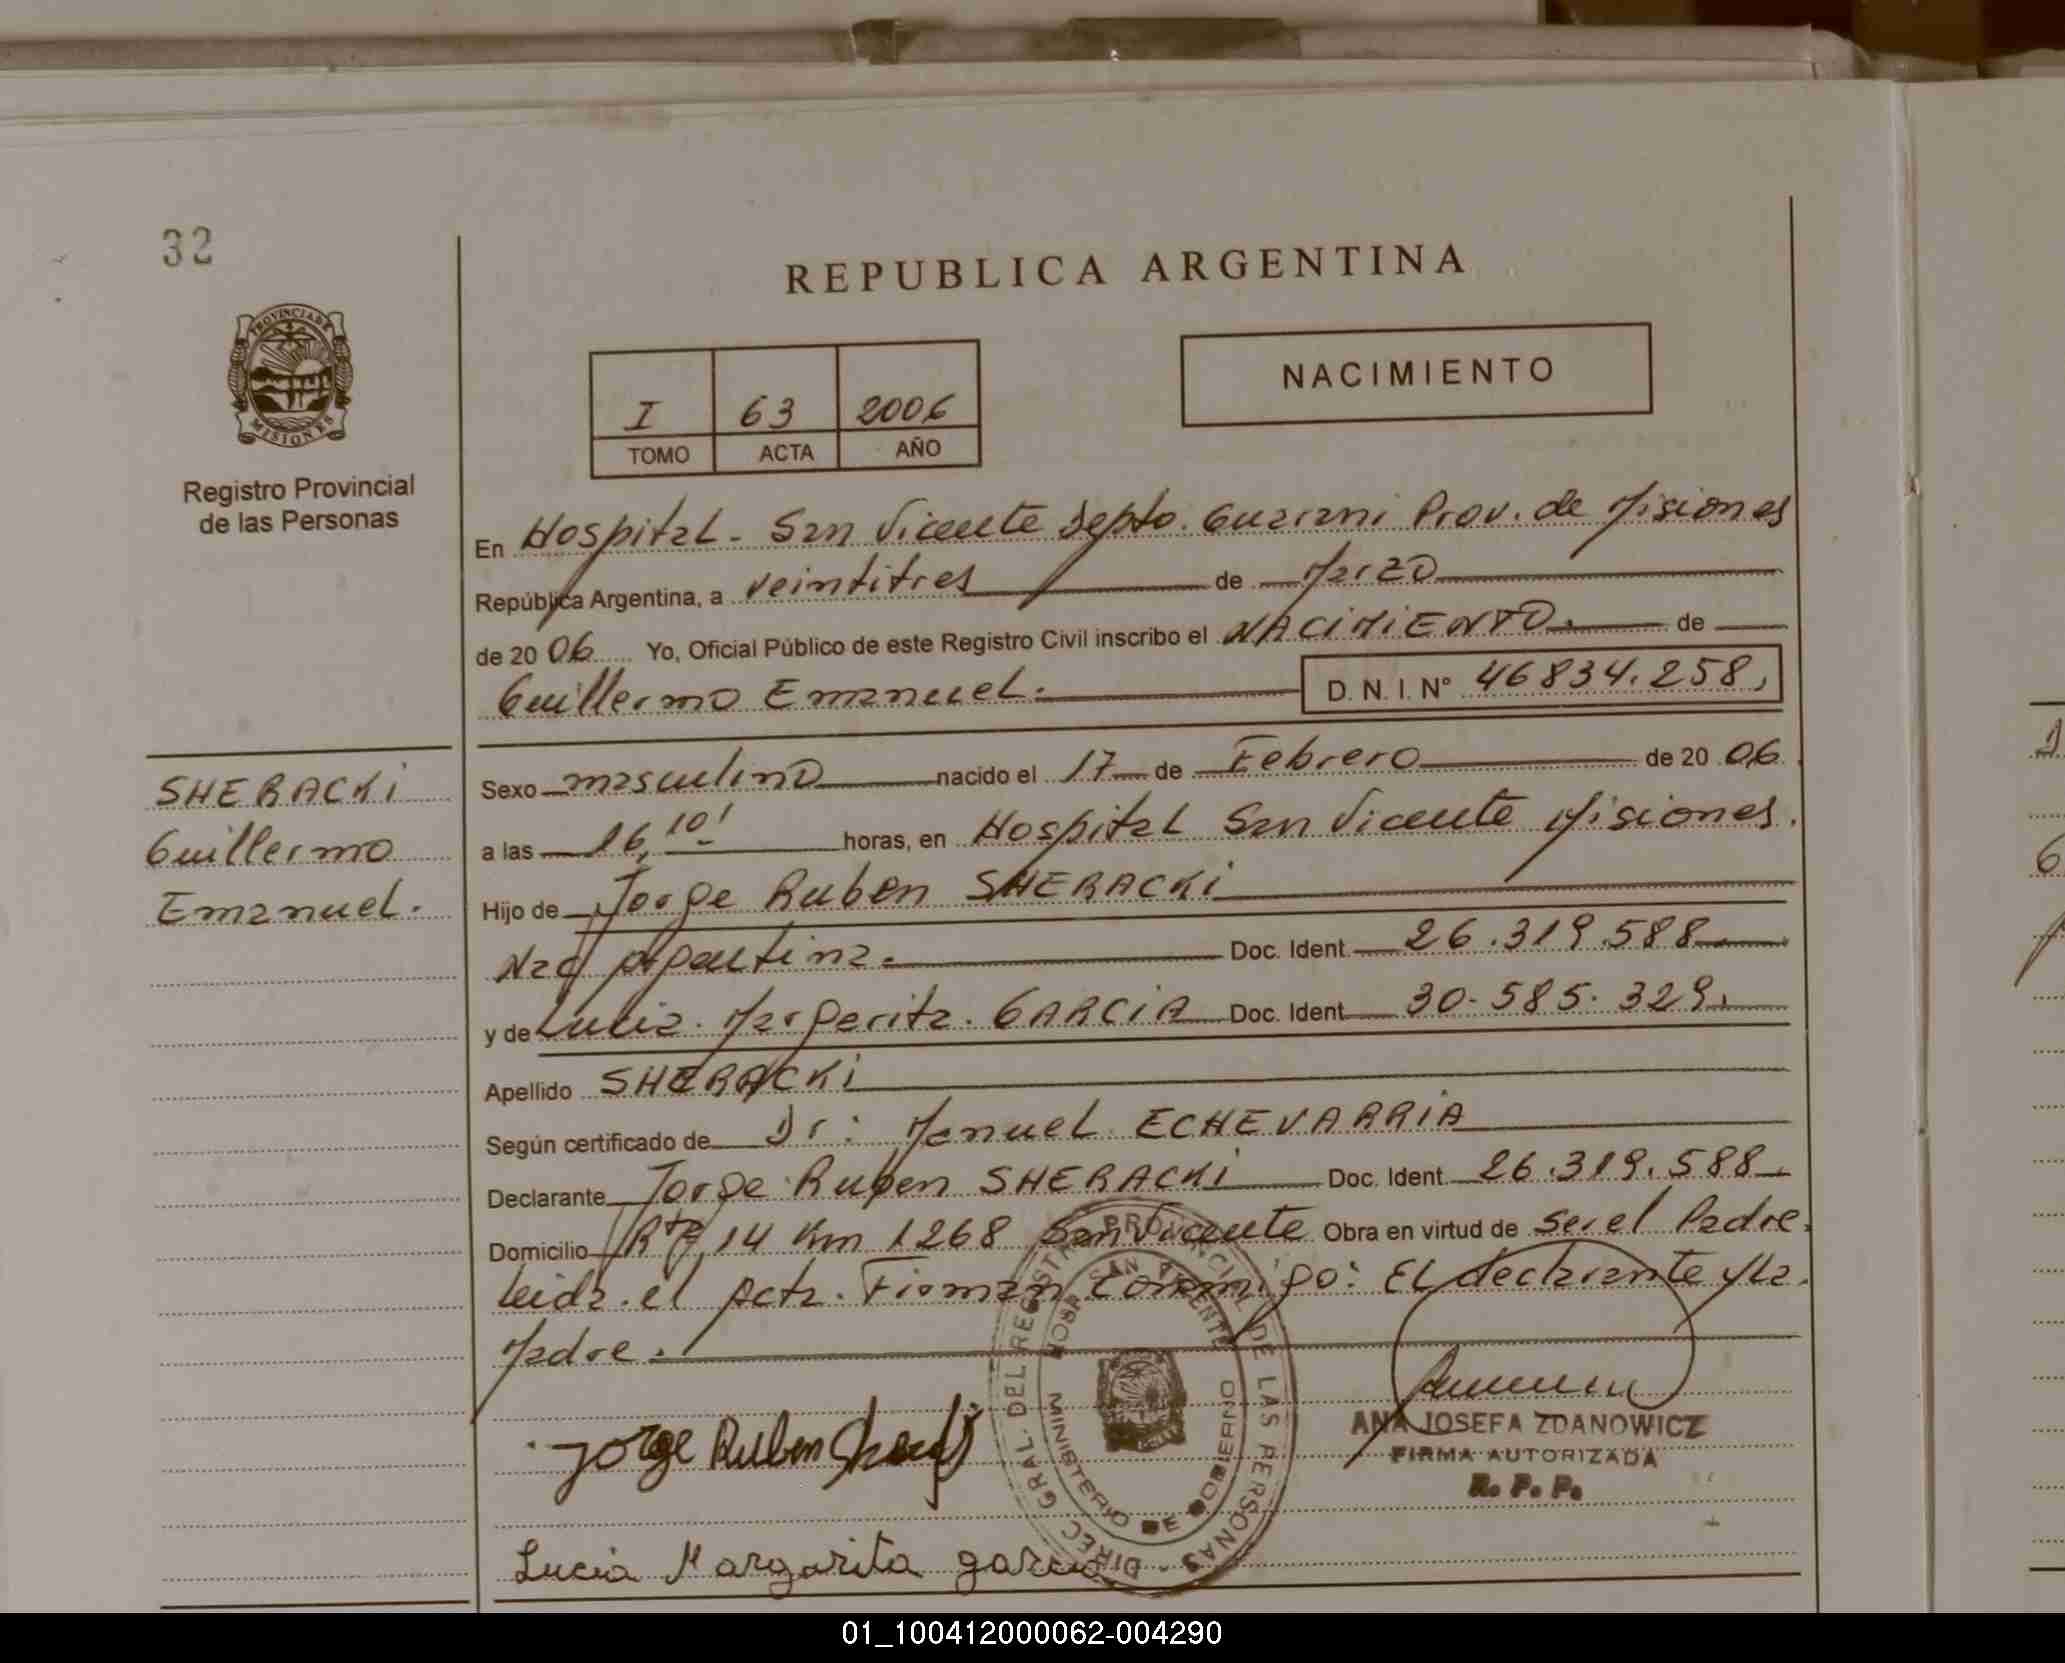 32
REPUBLICA ARGENTINA
PROVINCIA DE
MISIONES
Registro Provincial
de las Personas
I 63 2006
TOMO ACTA AÑO
NACIMIENTO
En Hospital - San Vicente Depto. Guarani Prov. de Misiones
República Argentina, a veintitres de Marzo
de 20 06 Yo, Oficial Público de este Registro Civil inscribo el NACIMIENTO. de
Guillermo Emanuel. D. N. I. Nº 46834.258,
SHERACKI
Guillermo
Emanuel.
Sexo masculino nacido el 17 de Febrero de 20 06
a las 16,10' horas, en Hospital San Vicente Misiones.
Hijo de Jorge Ruben SHERACKI
Nac Argentina. Doc. Ident. 26.319.588
y de Lucia. Margarita. GARCIA Doc. Ident. 30.585.329.
Apellido SHERACKI
Según certificado de Dr: Manuel ECHEVARRIA
Declarante Jorge Ruben SHERACKI Doc. Ident. 26.319.588
Domicilio 14 Km 1268 San Vicente Obra en virtud de ser el Padre.
leida. el Acta. Firman Conmigo: El declarante y la.
Madre.
Jorge Ruben
Lucia Margarita garcia
DIREC. GRAL. DEL REGISTRO PROVINCIAL DE LAS PERSONAS
HOSP. SAN VICENTE
MINISTERIO DE GOBIERNO
ANA JOSEFA ZDANOWICZ
FIRMA AUTORIZADA
R. P. P.
01_100412000062-004290